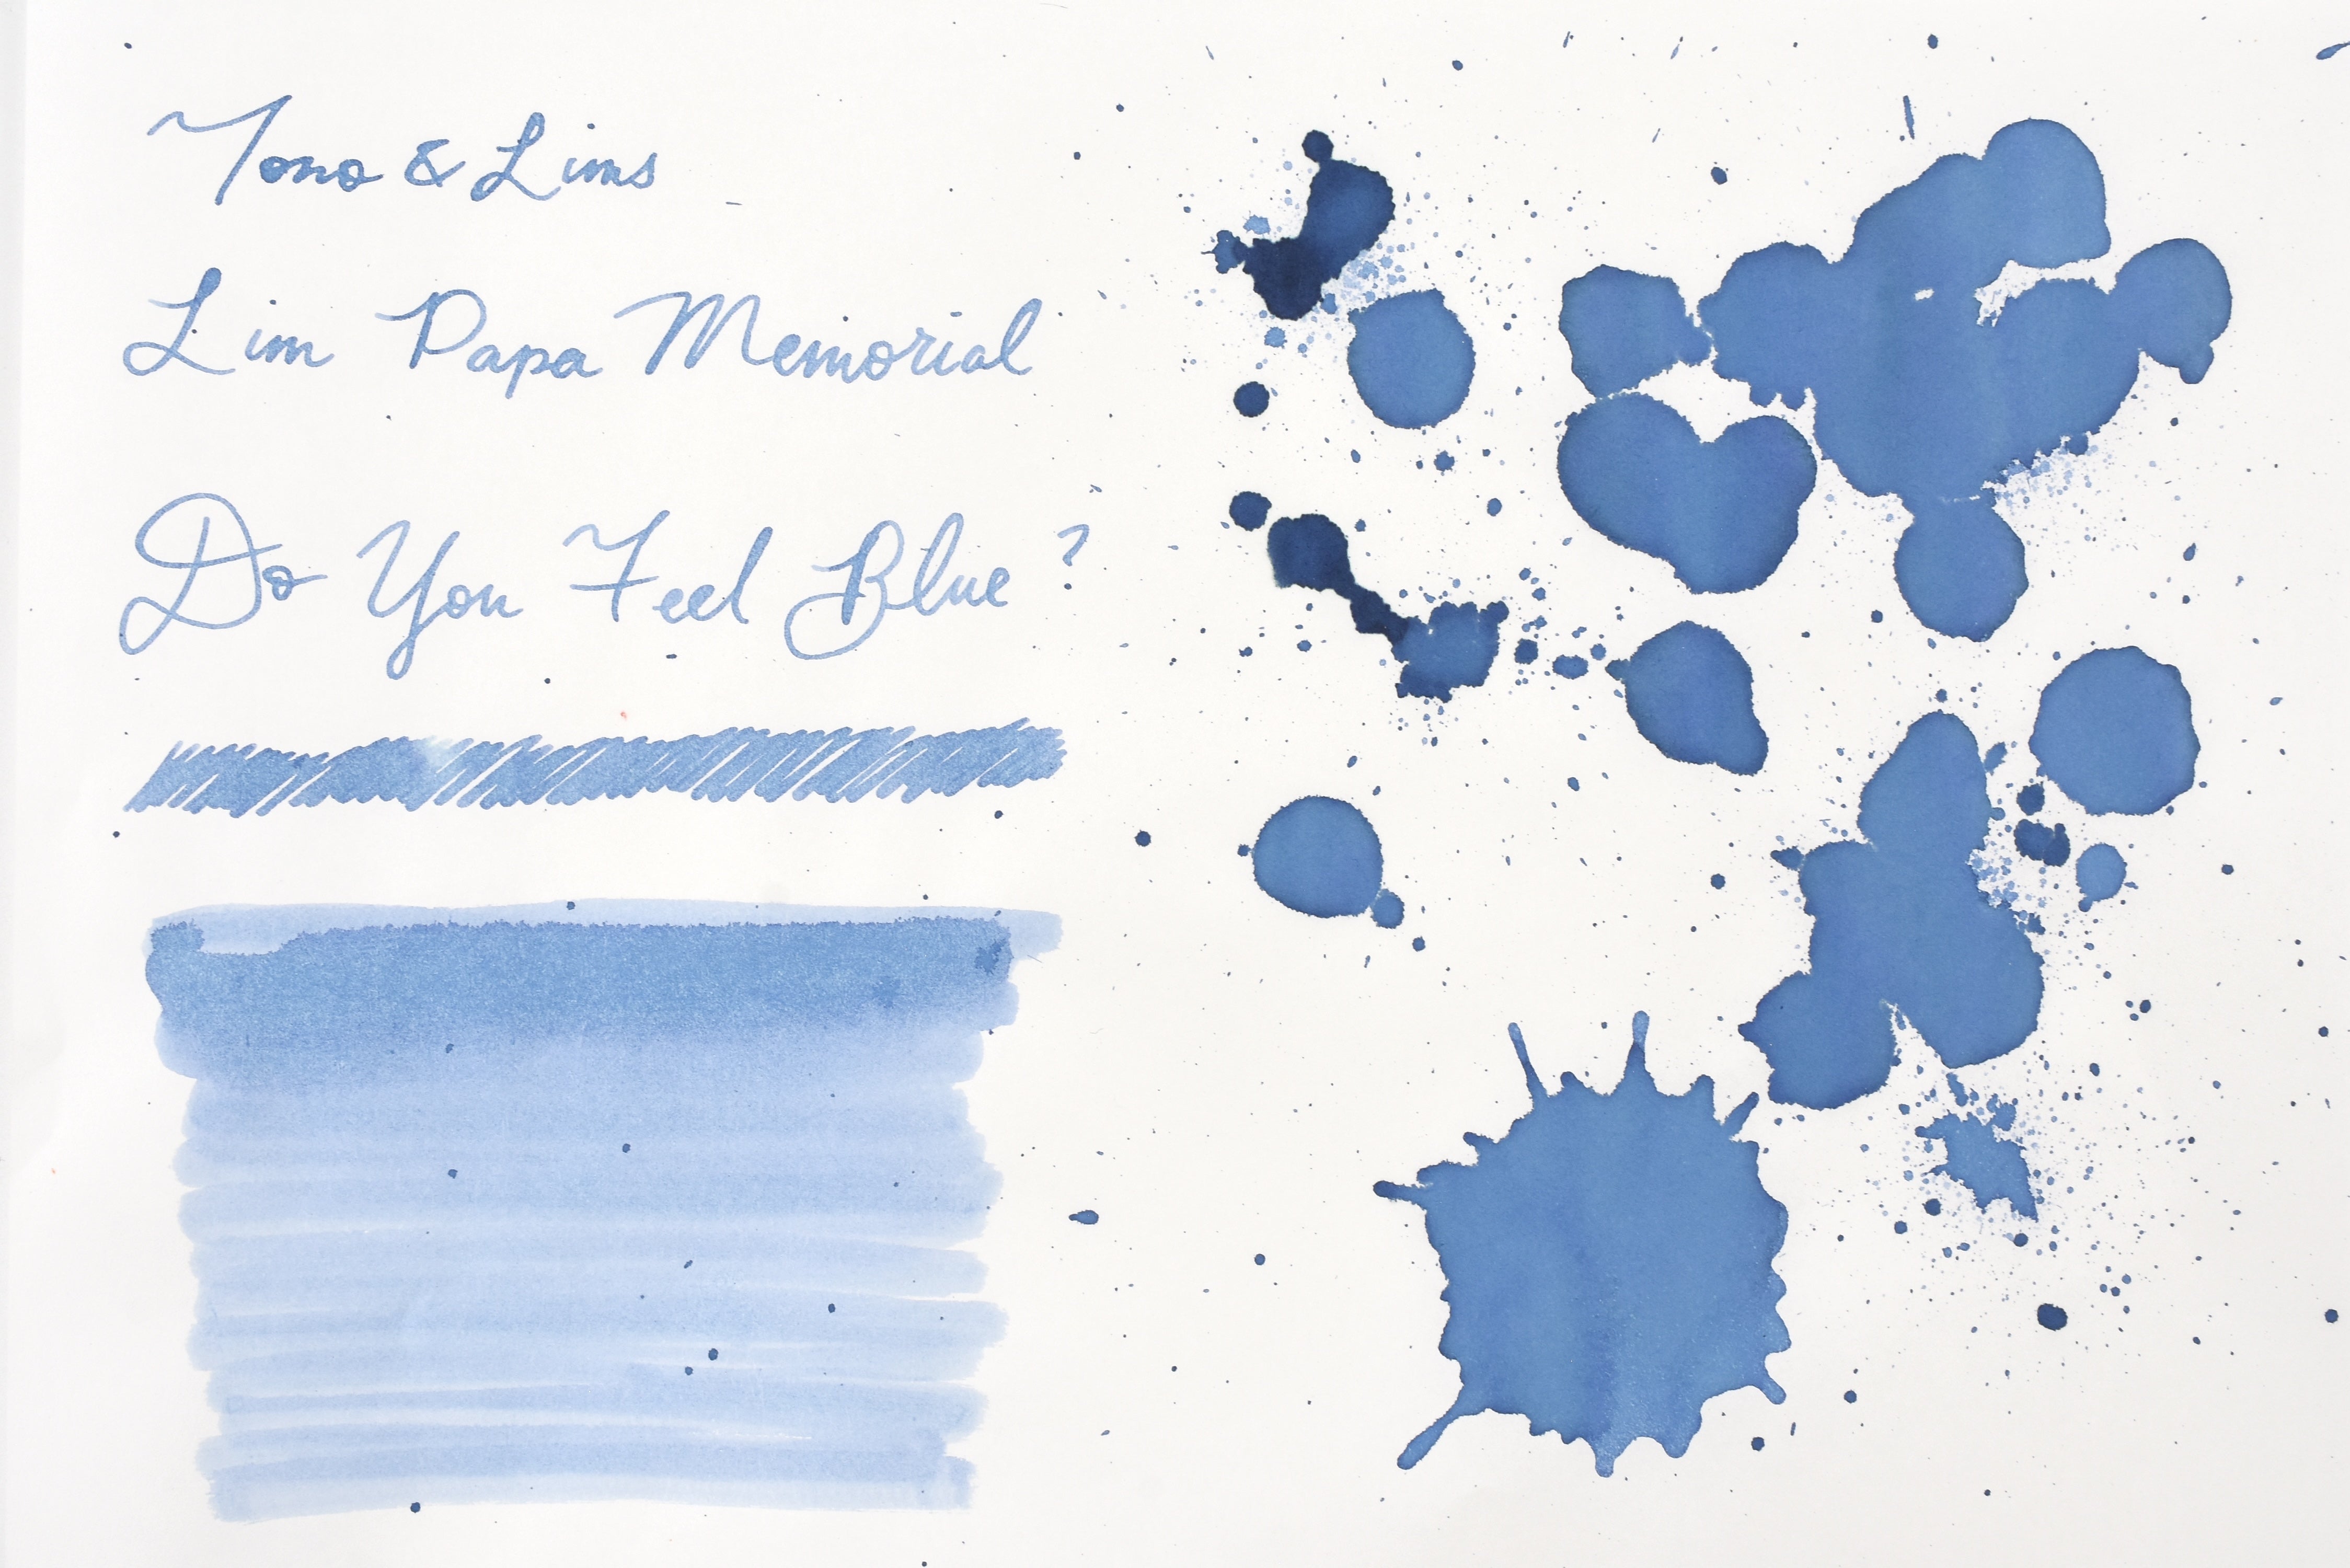 Tono & Lims
Lim Papa Memorial
Do You Feel Blue?